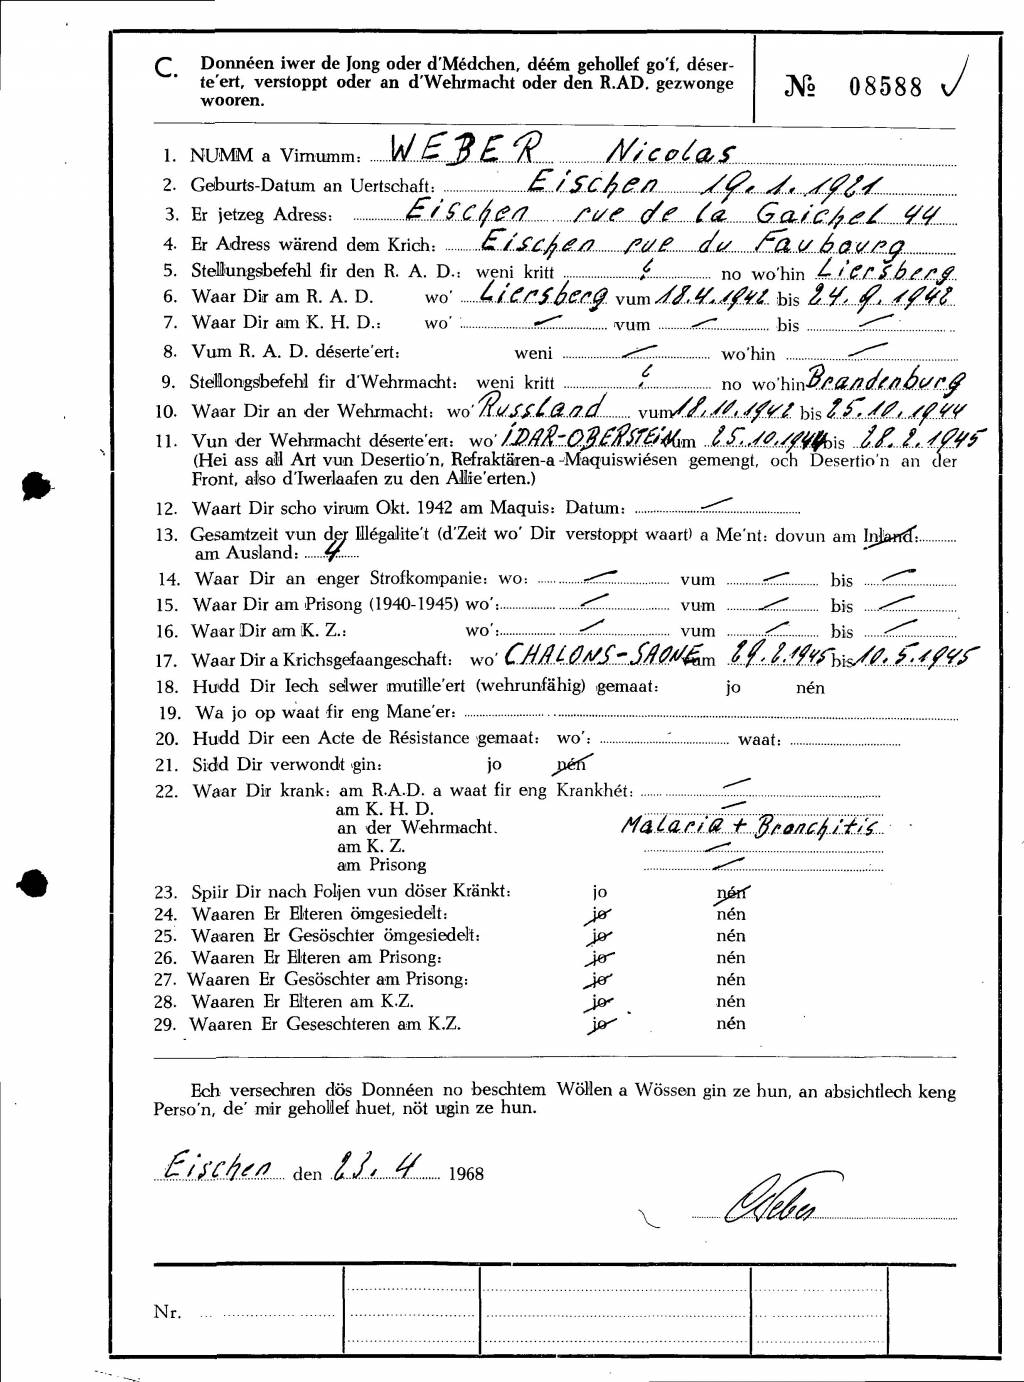 C. Donnéen iwer de Jong oder d'Médchen, déém gehollef go'f, déser-
te'ert, verstoppt oder an d'Wehrmacht oder den R.AD. gezwonge
wooren.
№ 08588
1. NUMM a Virnumm: WEBER Nicolas
2. Geburts-Datum an Uertschaft: Eischen 19.1.1921
3. Er jetzeg Adress: Eischen rue de la Gaichel 44
4. Er Adress wärend dem Krich: Eischen rue du Faubourg
5. Stellungsbefehl fir den R. A. D.: weni kritt ? no wo'hin Liersberg
6. Waar Dir am R. A. D. wo' Liersberg vum 18.4.1942 bis 24.9.1942
7. Waar Dir am K. H. D.: wo' — vum — bis —
8. Vum R. A. D. déserte'ert: weni — wo'hin —
9. Stellongsbefehl fir d'Wehrmacht: weni kritt ? no wo'hin Brandenburg
10. Waar Dir an der Wehrmacht: wo' Russland vum 18.10.1942 bis 25.10.1944
11. Vun der Wehrmacht déserte'ert: wo' IDAR-OBERSTEIN vum 25.10.1944 bis 28.2.1945
(Hei ass all Art vun Desertio'n, Refraktären-a-Maquiswiésen gemengt, och Desertio'n an der
Front, also d'Iwerlaafen zu den Allie'erten.)
12. Waart Dir scho virum Okt. 1942 am Maquis: Datum: —
13. Gesamtzeit vun der Illégalite't (d'Zeit wo' Dir verstoppt waart) a Me'nt: dovun am Inland:
am Ausland: 4
14. Waar Dir an enger Strofkompanie: wo: — vum — bis —
15. Waar Dir am Prisong (1940-1945) wo': — vum — bis —
16. Waar Dir am K. Z.: wo': — vum — bis —
17. Waar Dir a Krichsgefaangeschaft: wo' CHALONS-SAONE vum 29.2.1945 bis 10.5.1945
18. Hudd Dir Iech selwer mutille'ert (wehrunfähig) gemaat: jo nén
19. Wa jo op waat fir eng Mane'er:
20. Hudd Dir een Acte de Résistance gemaat: wo': waat:
21. Sidd Dir verwondt gin: jo nén
22. Waar Dir krank: am R.A.D. a waat fir eng Krankhét: —
am K. H. D. —
an der Wehrmacht. Malaria + Bronchitis
am K. Z. —
am Prisong —
23. Spiir Dir nach Foljen vun döser Kränkt: jo nén
24. Waaren Er Elteren ömgesiedelt: jo nén
25. Waaren Er Gesöschter ömgesiedelt: jo nén
26. Waaren Er Elteren am Prisong: jo nén
27. Waaren Er Gesöschter am Prisong: jo nén
28. Waaren Er Elteren am K.Z. jo nén
29. Waaren Er Geseschteren am K.Z. jo nén
Ech versechren dös Donnéen no beschtem Wöllen a Wössen gin ze hun, an absichtlech keng
Perso'n, de' mir gehollef huet, nöt ugin ze hun.
Eischen den 23.4 1968
Weber
Nr.